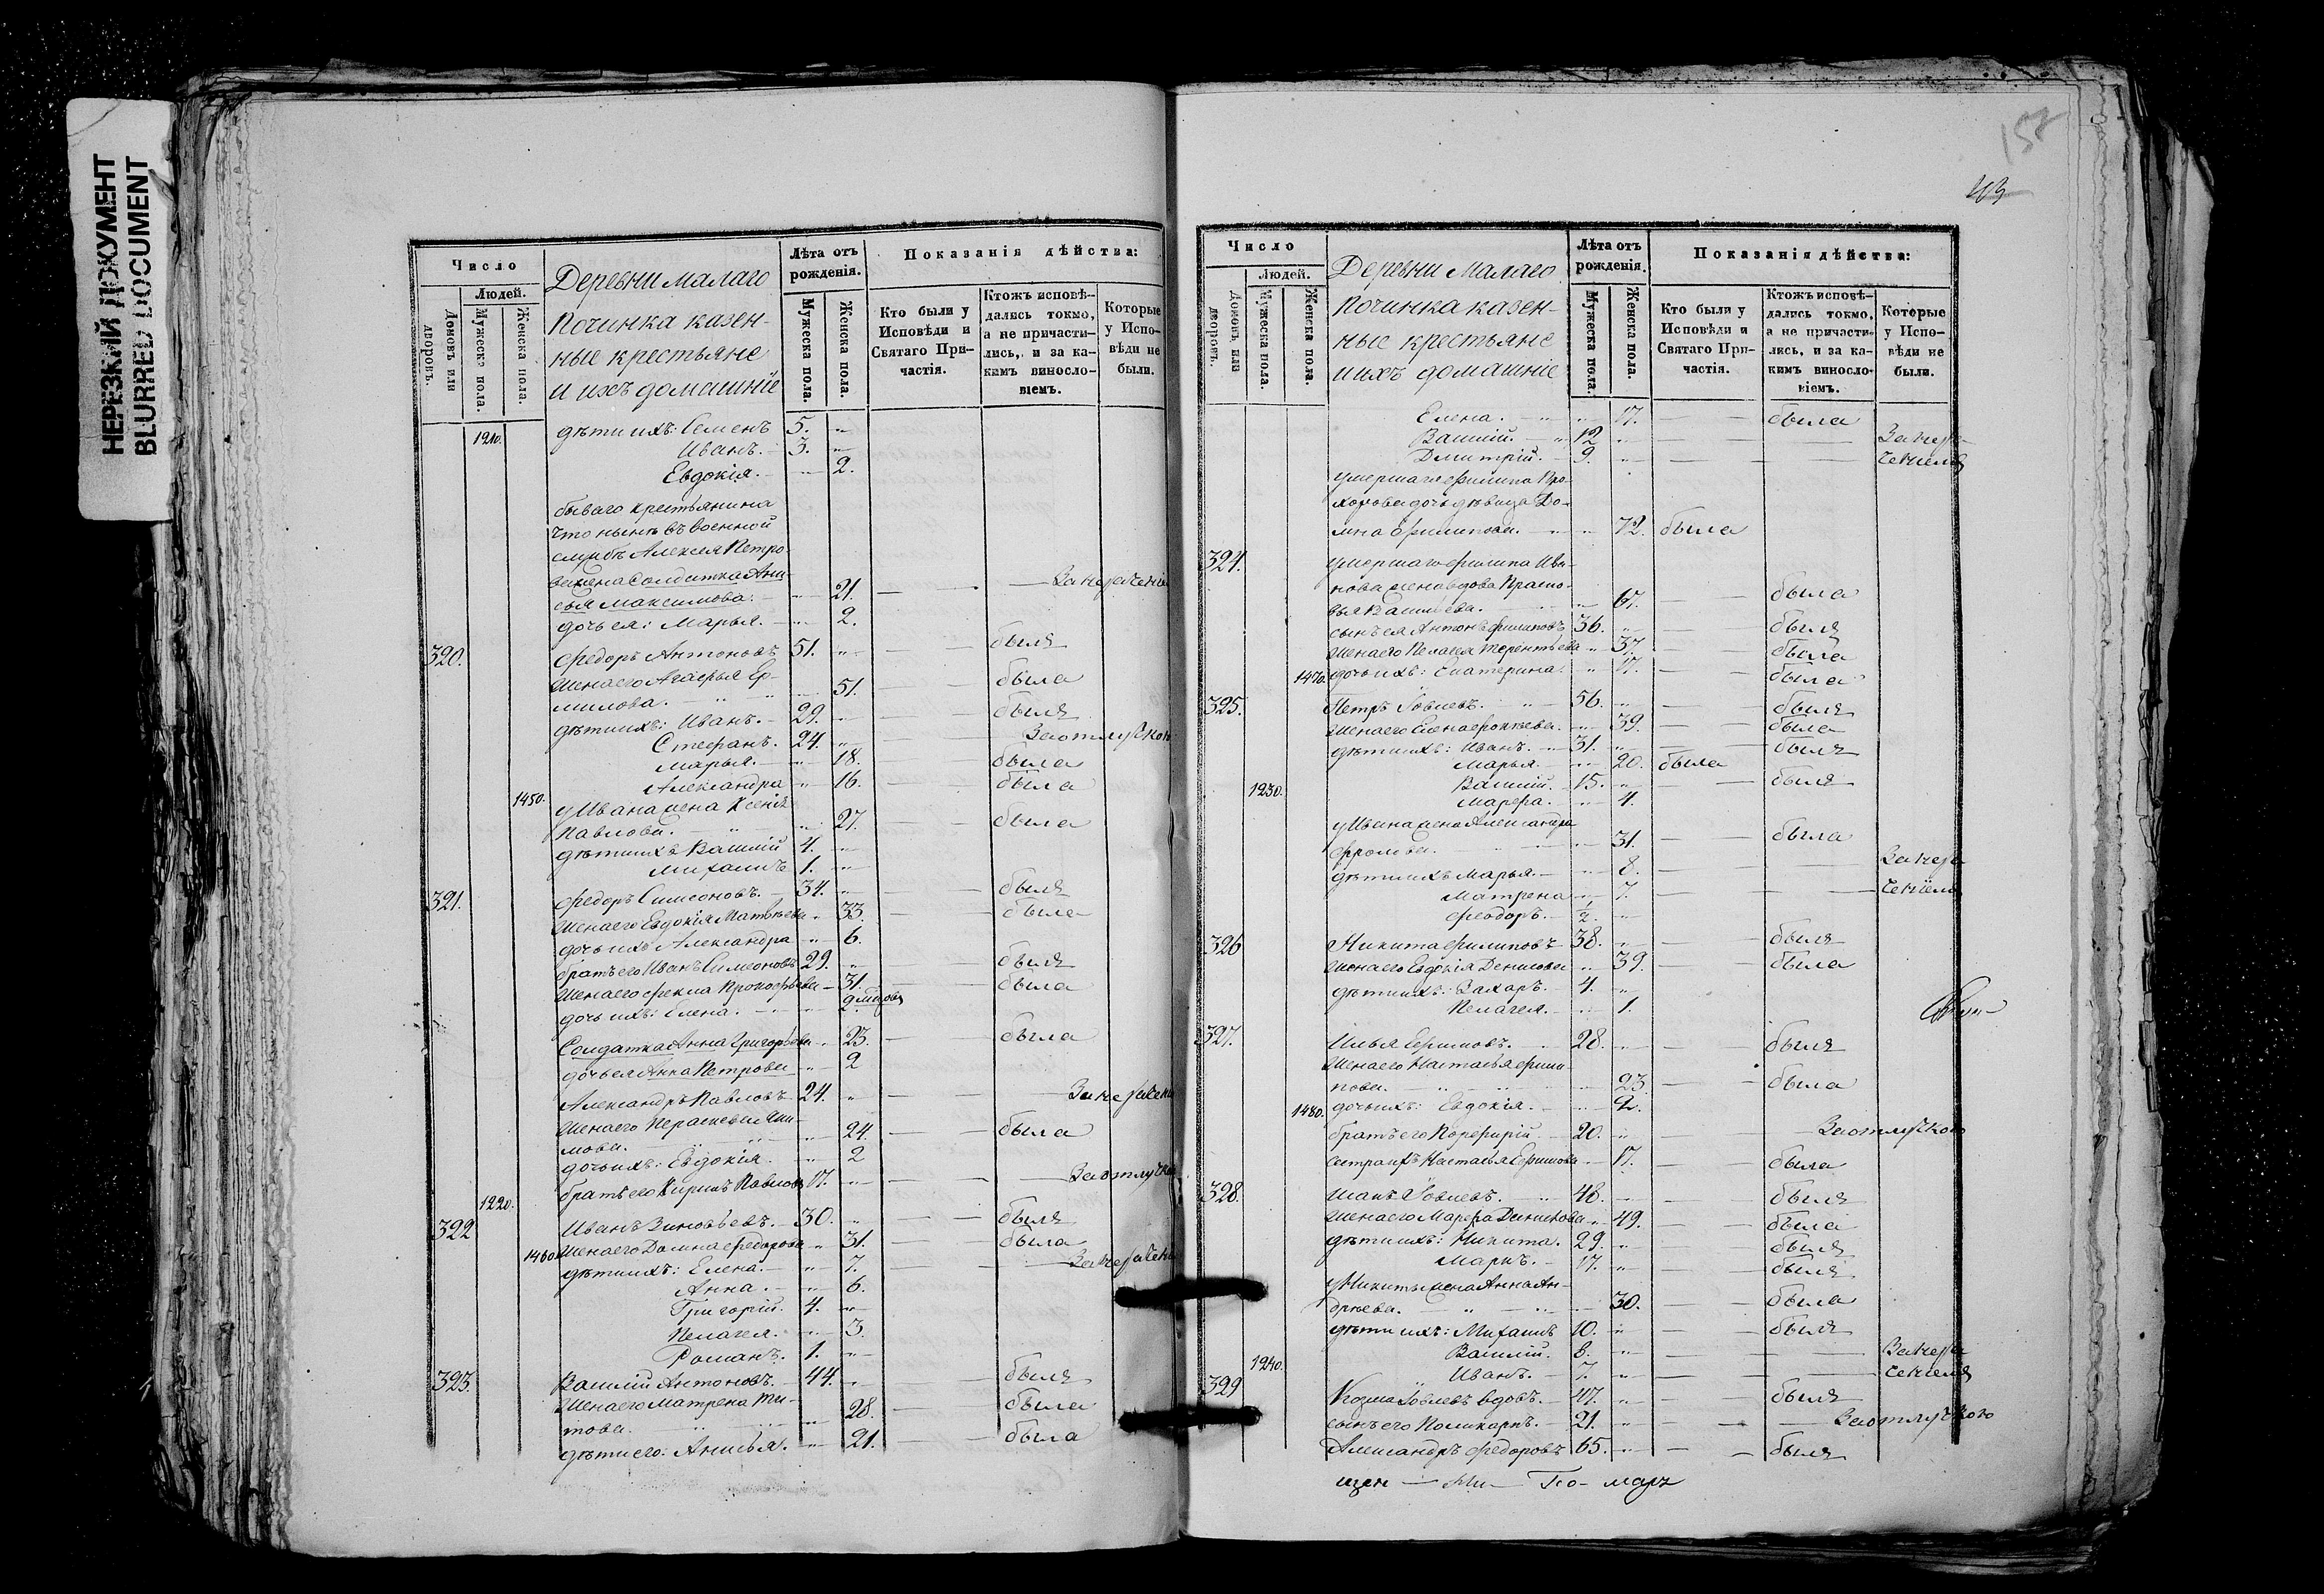 НЕРЕЗКИЙ ДОКУМЕНТ
BLURRED DOCUMENT
Число
Людей.
Домовъ или дворовъ.
Мужеска пола.
Женска пола.
Деревни малаго
Починка казен-
ные крестьяне
и ихъ домашніе
Лѣта отъ рожденія.
Мужеска пола.
Женска пола.
Показанія дѣйства:
Кто были у Исповѣди и Святаго Причастія.
Ктожъ исповѣ-
дались токмо,
а не причасти-
лись, и за ка-
кимъ виносло-
віемъ.
Которые
у Испо-
вѣди не
были.
1210. дѣти ихъ: Семенъ 5.
Иванъ. 3.
Евдокія. 2.
бываго крестьянина
что нынѣ въ военной
службѣ Алексея Петро-
ва жена солдатка Ани-
сья Максимова. 21. За нерачені
дочь ея: Марья. 2.
320. Федоръ Антоновъ 51. былъ
жена его Агафья Ер-
милова. 51. была
дѣти ихъ: Иванъ. 29. былъ
Стефанъ. 24. За отлучкою
Марья. 18. была
1450. Александра 16. была
у Ивана жена Ксенія
Павлова. 27. была
дѣти ихъ Василій 4.
Михаилъ 1.
321. Федоръ Симеоновъ. 34. былъ
жена его Евдокія Матвѣева 33. была
дочь ихъ Александра 6.
братъ его Иванъ Симеоновъ 29. былъ
жена его Фекла Прокофьева 31. была
дочь ихъ: Елена. 2.
Солдатка Анна Григорьева 23. была
дочь ея Анна Петрова 2
Александръ Павловъ 24. За нерачені
жена его Параскева Яки-
мова. 24. была
дочь ихъ: Евдокія. 2
1220. братъ его Кирилъ Павловъ 17. За отлучкою
322 Иванъ Зиновьевъ. 30. былъ
1460. жена его Домна Федорова 31. была
дѣти ихъ: Елена. 7. За нерачені
Анна. 6.
Григорій. 4.
Пелагея. 3.
Романъ. 1.
323. Василій Антоновъ. 44. былъ
жена его Матрена Ти-
това. 28. была
дѣти его: Анисья. 21. была
157
Число
Людей.
Домовъ, или дворовъ.
Мужеска пола.
Женска пола.
Деревни Малаго
Починка казен-
ные крестьяне
и ихъ домашніе
Лѣта отъ рожденія.
Мужеска пола.
Женска пола.
Показанія дѣйства:
Кто были у Исповѣди и Святаго Причастія.
Ктожъ исповѣ-
дались токмо,
а не причасти-
лись, и за ка-
кимъ виносло-
віемъ.
Которые
у Испо-
вѣди не
были.
Елена. 17. была
Василій. 12 За нера-
Дмитрій. 9. ченіемъ
умершаго Филипа Про-
хорова дочь дѣвица До-
мна Филипова. 72. была
324. умершаго Филипа Ива-
нова жена вдова Праско-
вья Васильева. 67. была
сынъ ея Антонъ Филиповъ 36. былъ
жена его Пелагея Терентьева 37. была
1470. дочь ихъ: Екатерина. 17. была
325. Петръ Іовлевъ. 56. былъ
жена его Елена Фокѣева. 39. была
дѣти ихъ: Иванъ. 31. былъ
Марья. 20. была
1230. Василій. 15. былъ
Марфа. 4.
у Ивана жена Александра
Фролова. 31. была
дѣти ихъ Марья. 8. За нера
Матрена 7. ченіемъ
Феодоръ. 1/2.
326 Никита Филиповъ 38. былъ
жена его Евдокія Денисова 39. была
дѣти ихъ: Захаръ. 4.
Пелагея. 1.
327. Илья Ефимовъ. 28. былъ
жена его Настасья Фили-
пова. 23. была
1480. дочь ихъ: Евдокія. 2.
братъ его Порфирій. 20. За отлучкою
сестра ихъ Настасья Ефимова 17. была
328. Исакъ Іовлевъ. 48. былъ
жена его Марфа Данилова 49. была
дѣти ихъ: Никита. 29. былъ
Маркъ. 17. былъ
у Никиты жена Анна Ан-
дреева. 30. была
дѣти ихъ: Михаилъ 10. былъ
Василій. 8. За нера
1240. Иванъ. 7. ченіемъ
329 Козма Іовлевъ вдовъ. 47. былъ
сынъ его Поликарпъ. 21. За отлучкою
Александръ Федоровъ 65. былъ